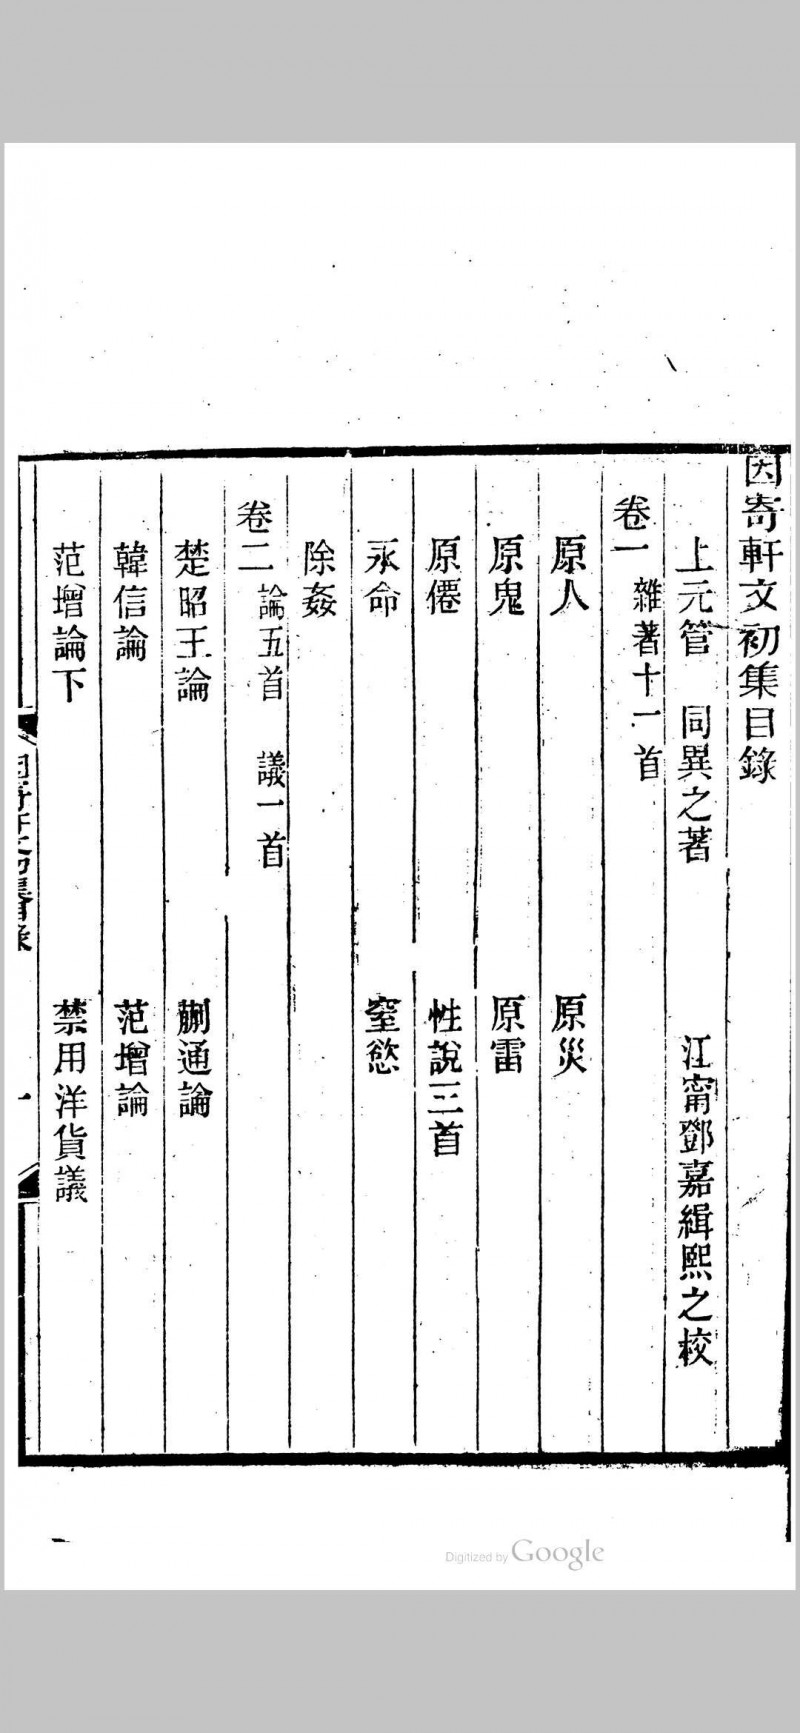 因寄軒文初集目錄
上元管　同異之著　江甯鄧嘉緝熙之校
卷一　雜著十一首
原人　原災
原鬼　原雷
原僊　性說三首
永命　窒慾
除姦
卷二　論五首　議一首
楚昭王論　蒯通論
韓信論　范增論
范增論下　禁用洋貨議
因寄軒文初集目錄　一
Digitized by Google